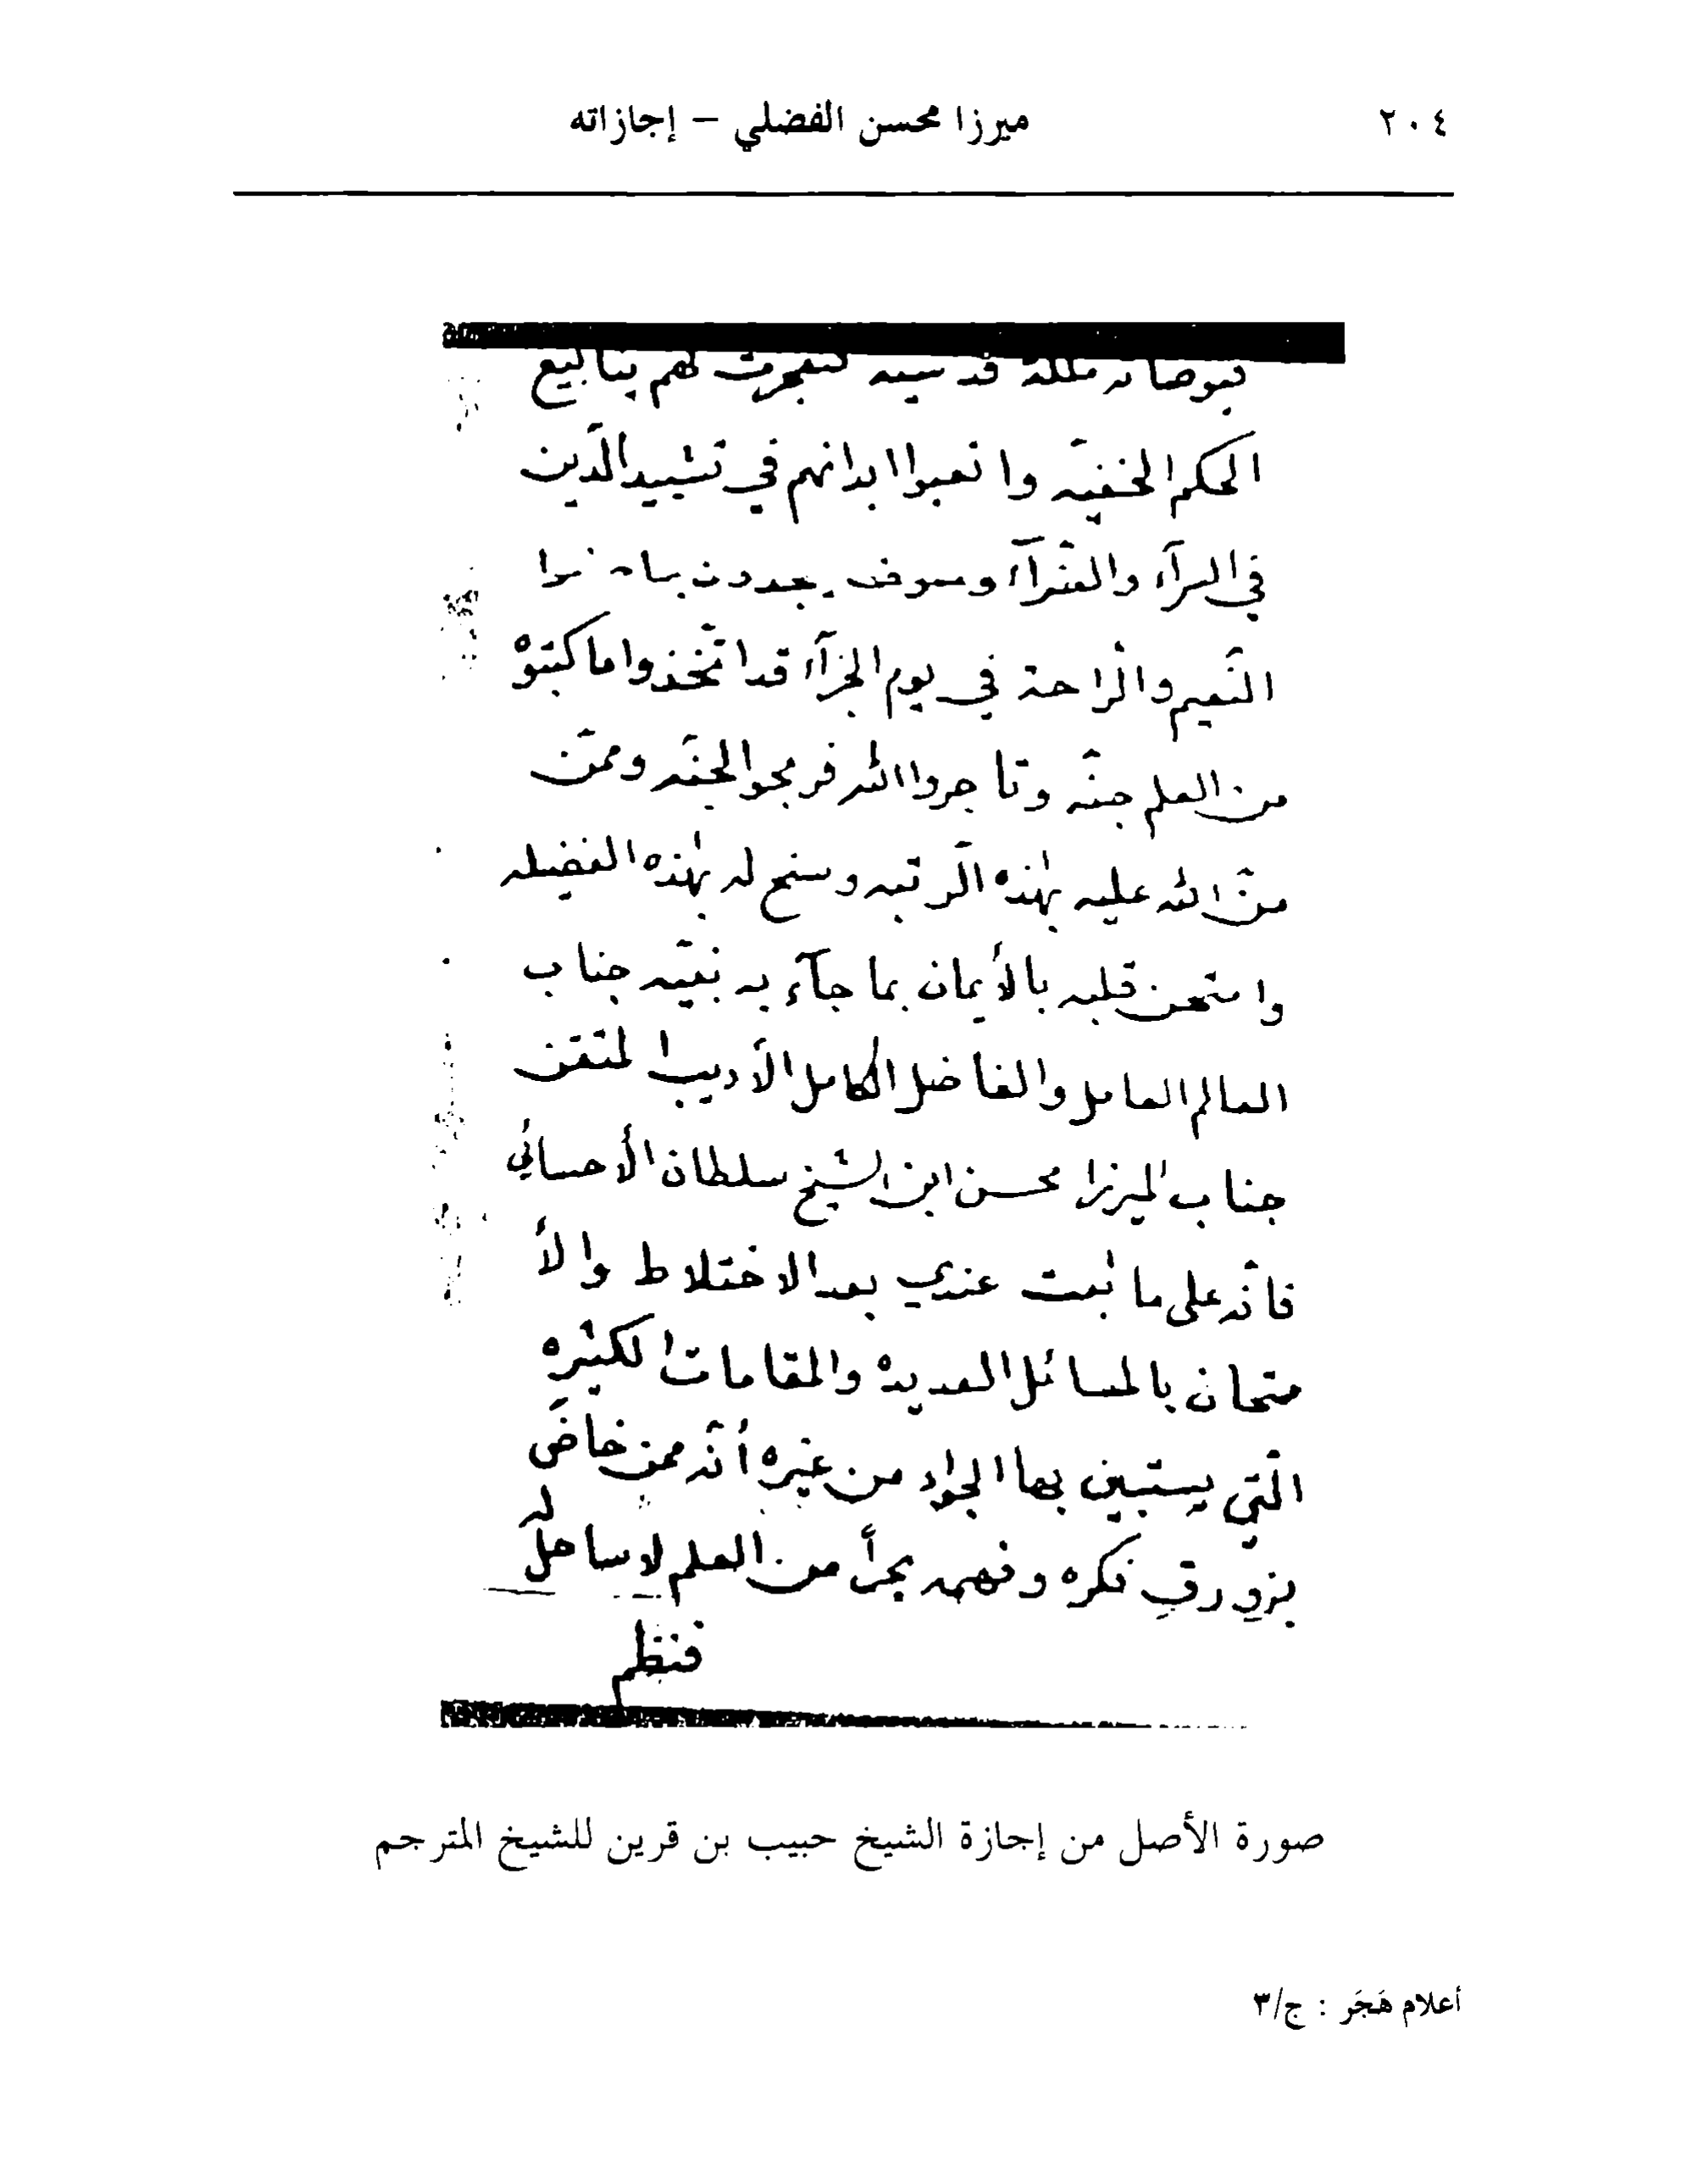 ٢٠٤
ميرزا محسن الفضلي – إجازاته
قدسيه لتفجرت لهم ينابيع
الحكم الخفيّه واتعبوا ابدانهم في تشييد الدّين
في السرآء والضرآء وسوف يجدون
النّعيم والرّاحة في يوم الجزآء قد اتّخذوا ما كتبوه
من العلم جنّه وتاجروا الله فربحوا الجنّه وممّن
منّ الله عليه بهٰذه الرّتبه وسنح له بهٰذه الفضيله
وامتحن قلبه بالأيمان بما جآء به نبيّه جناب
العالم العامل والفاضل الكامل الأديب المتقن
جناب الميرزا محسن ابن الشيخ سلطان الأحسائي
فانّه على ما ثبت عندي بعد الاختلاط والأ
متحان بالمسائل العديده والمقامات الكثيره
الّتي يستبين بها الجواد من غيره أنّه ممن خاض
بزورق فكره وفهمه بحراً من العلم لا ساحل له
فنظم
صورة الأصل من إجازة الشيخ حبيب بن قرين للشيخ المترجم
أعلام هَجَر : ج/٣